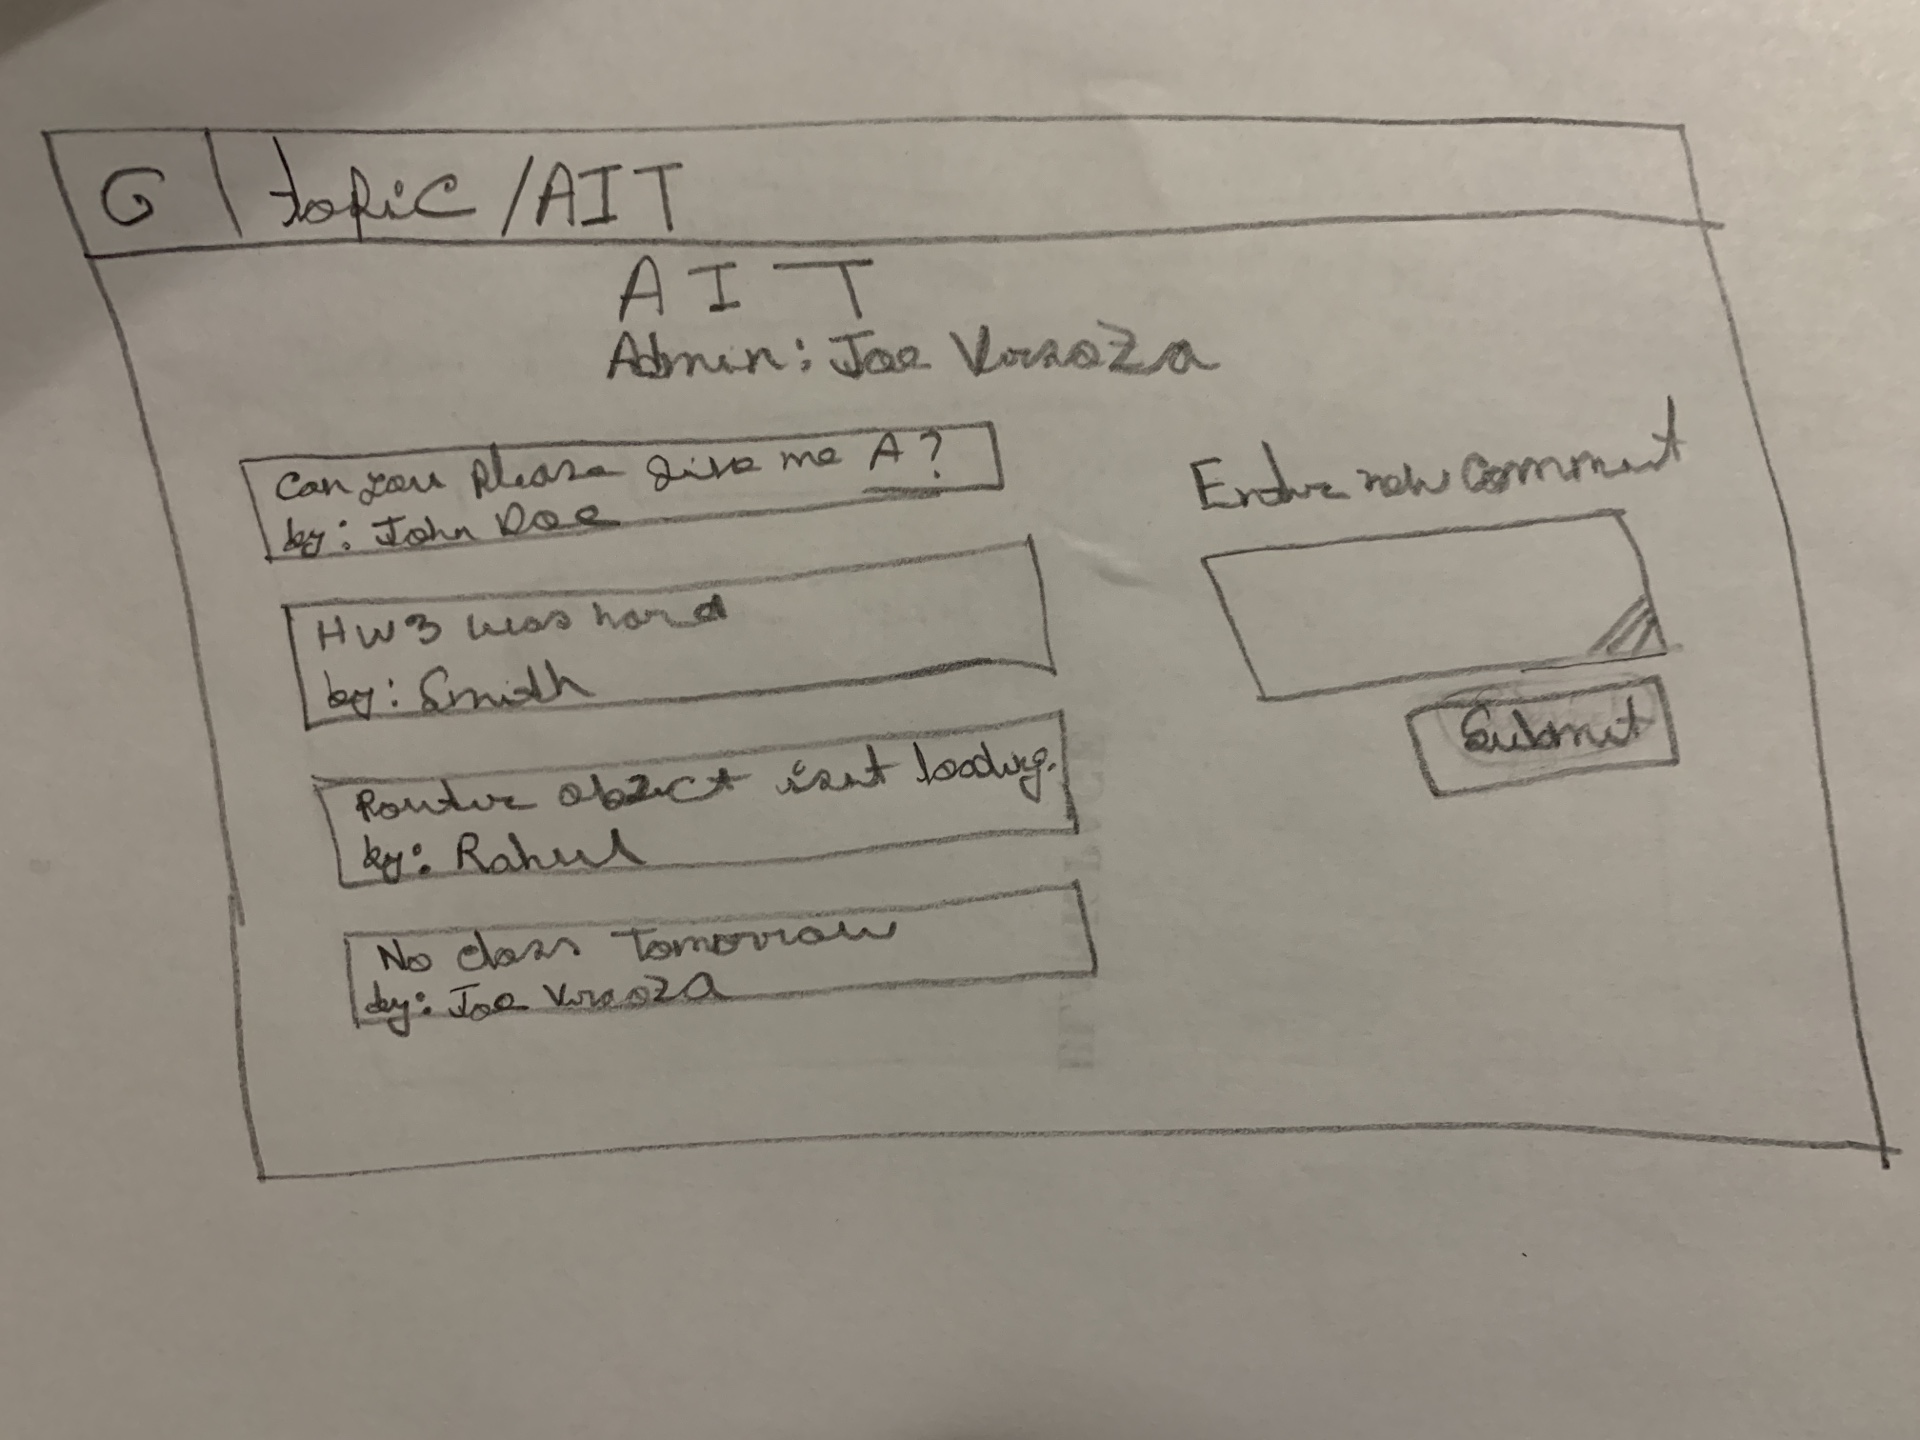 G topic/AIT
AIT
Admin: Joe Versoza
Can you please give me A?
by: John Doe
HW3 was hard
by: Smith
Router object isnt loading.
by: Rahul
No class Tomorrow
by: Joe Versoza
Enter new comment
Submit